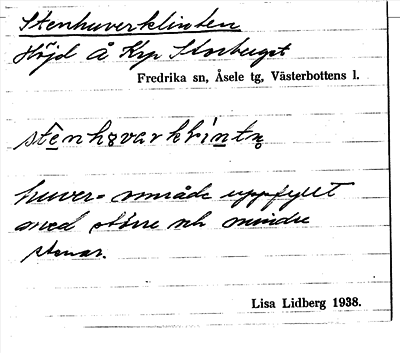 Stenhuverklinten
Höjd å Krp Storberget
Fredrika sn, Åsele tg, Västerbottens l.
huver = område uppfyllt
med större och mindre
stenar.
Lisa Lidberg 1938.